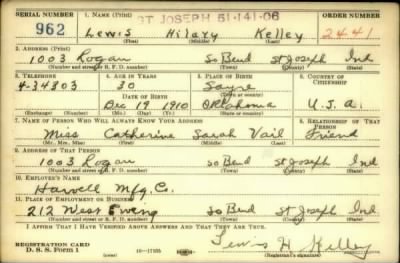 SERIAL NUMBER
1. NAME (Print)
ST JOSEPH 51-141-06
ORDER NUMBER
962
Lewis Hilary Kelley
2441
(First) (Middle) (Last)
2. ADDRESS (Print)
1003 Logan So Bend St Joseph Ind
(Number and street or R. F. D. number) (Town) (County) (State)
3. TELEPHONE
4. AGE IN YEARS
5. PLACE OF BIRTH
6. COUNTRY OF CITIZENSHIP
4-34303
30
Sayre
DATE OF BIRTH
(Town or county)
Dec 19 1910
Oklahoma
U.S.A.
(Exchange) (Number)
(Mo.) (Day) (Yr.)
(State or country)
7. NAME OF PERSON WHO WILL ALWAYS KNOW YOUR ADDRESS
8. RELATIONSHIP OF THAT PERSON
Miss Catherine Sarah Vail
Friend
(Mr., Mrs., Miss) (First) (Middle) (Last)
9. ADDRESS OF THAT PERSON
1003 Logan So Bend St Joseph Ind
(Number and street or R. F. D. number) (Town) (County) (State)
10. EMPLOYER'S NAME
Mfg. C.
11. PLACE OF EMPLOYMENT OR BUSINESS
212 West Ewing So Bend St Joseph Ind
(Number and street or R. F. D. number) (Town) (County) (State)
I AFFIRM THAT I HAVE VERIFIED ABOVE ANSWERS AND THAT THEY ARE TRUE.
REGISTRATION CARD
D. S. S. Form 1
16—17105
Lewis H Kelley
(Registrant's signature)